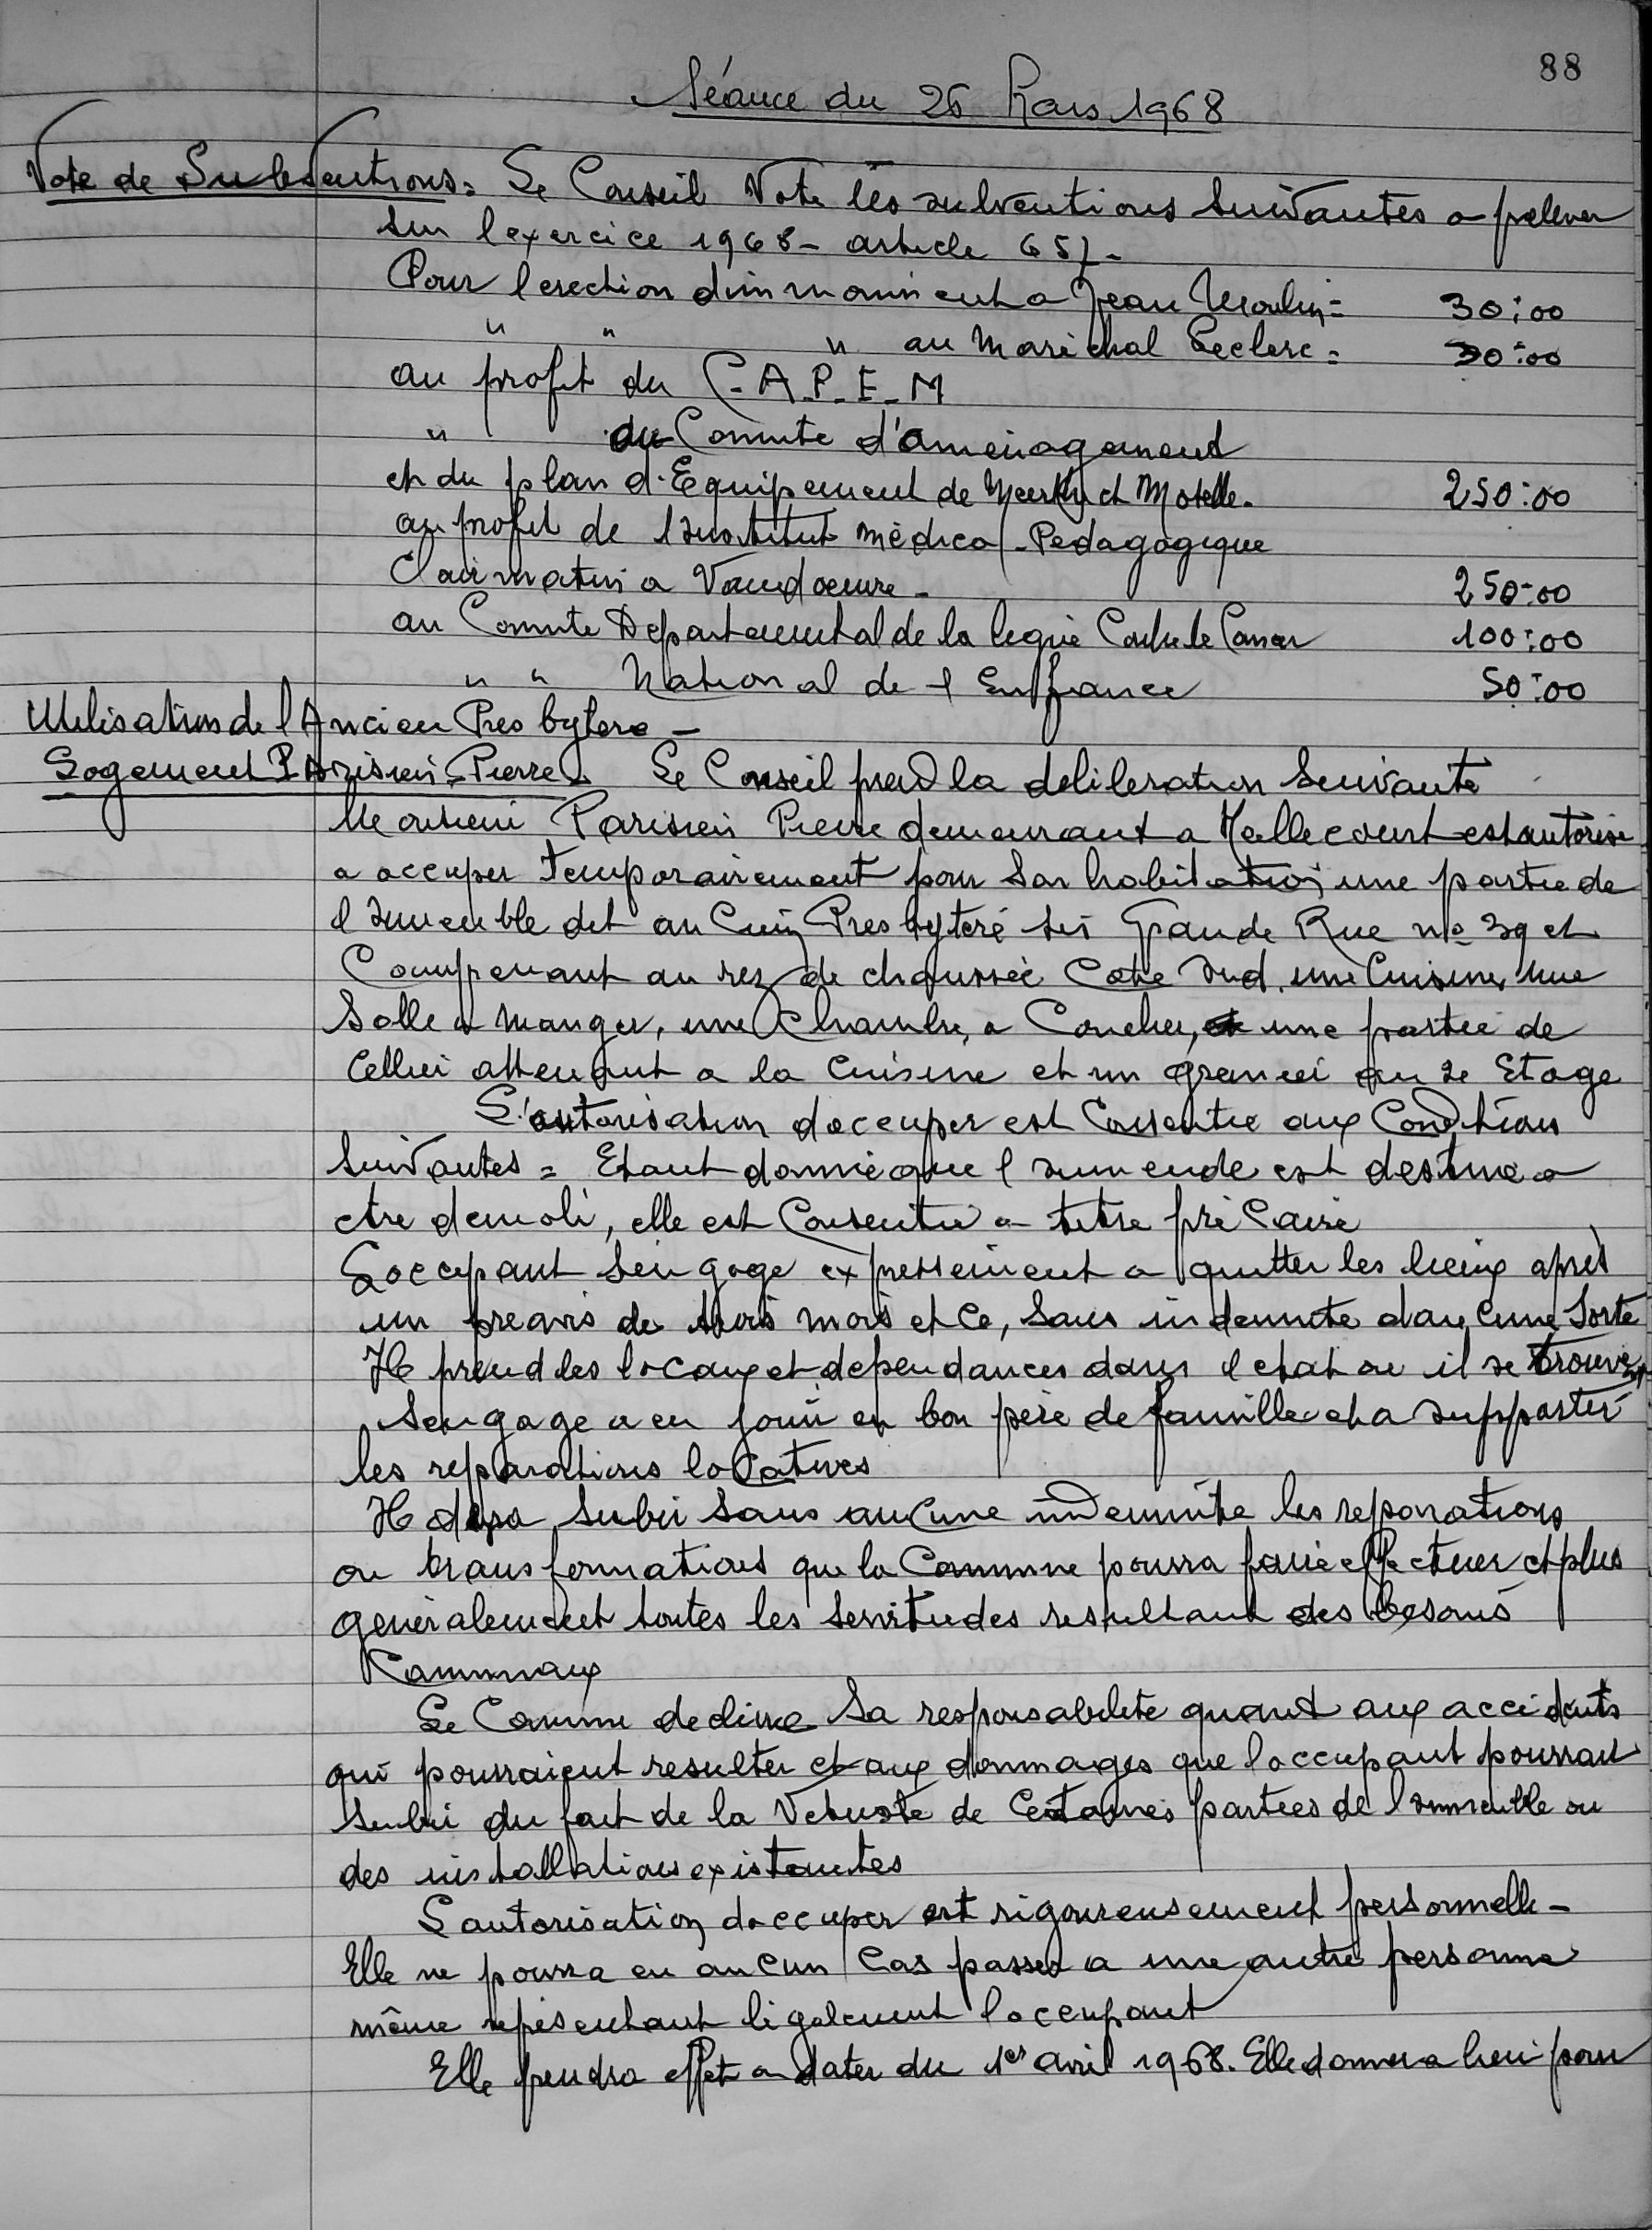 88
Séance du 26 Mars 1968
Vote de Subventions = Le Conseil Vote les subventions Suivantes a prelever
sur l exercice 1968 - article 657 -
Pour l erection d'un monument a Jean Moulin = 30:00
" " " au Maréchal Leclerc = 30:00
au profit du C-A-P-E-M
" du Comite d'aménagement
et du plan d'Equipement de Meurthe et Moselle - 250:00
au profit de l Institut médical-Pedagogique
Clairmatin a Vandoeuvre - 250:00
au Comite Departemental de la ligue Contre le Cancer 100:00
" " National de l Enffance 50:00
Utilisation de l'Ancien Presbytere -
Logement PArisien Pierre - Le Conseil prend la deliberation Suivante
Monsieur Parisien Pierre demeurant a est autorise
a occuper temporairement pour Son habitation une partie de
l immeuble dit ancien Presbytere sis Grande Rue no 39 et
Comprenant au rez de chaussée Cote Sud. une Cuisine, une
Salle a manger, une Chambre, a Coucher, et une partie de
Cellier attenant a la Cuisine et un grenier au 2e Etage
L'autorisation d occuper est Consentie aux Conditions
Suivantes = Etant donné que l immeuble est destine a
etre demoli, elle est Consentie a titre précaire
L occupant S engage expressement a quitter les lieux après
un preavis de trois mois et Ce, Sans indemnite d aucune Sorte
Il prend les locaux et dependances dans l etat ou il se trouvent
S engage a en jouir en bon père de famille et a supporter
les reparations locatives
Il devra Subir Sans aucune indemnite les reparations
ou transformations que la Commune pourra faire effectuer et plus
généralement toutes les Servitudes resultant des besoins
Communaux
La Commune decline Sa responsabilite quant aux accidents
qui pourraient resulter et aux dommages que l occupant pourrait
Subir du fait de la Vetuste de Certaines parties de l immeuble ou
des installations existantes
L autorisation d occuper est rigoureusement personnelle -
Elle ne pourra en aucun Cas passer a une autre personne
même représentant légalement l occupant
Elle prendra effet a dater du 1er avril 1968. Elle donnera lieu pour